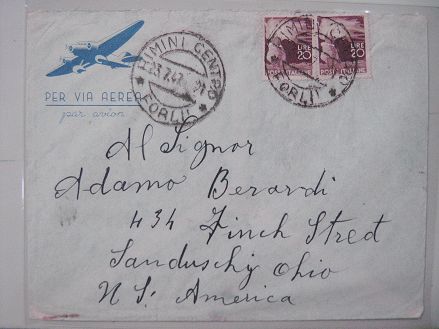 RIMINI CENTRO
23.7.47
FORLI'
LIRE
20
POSTE ITALIANE
LIRE
20
POSTE ITALIANE
RIMINI CENTRO
FORLI'
PER VIA AEREA
par avion
Al Signor
Adamo Berardi
434 Finch Street
Sanduschy Ohio
N S. America